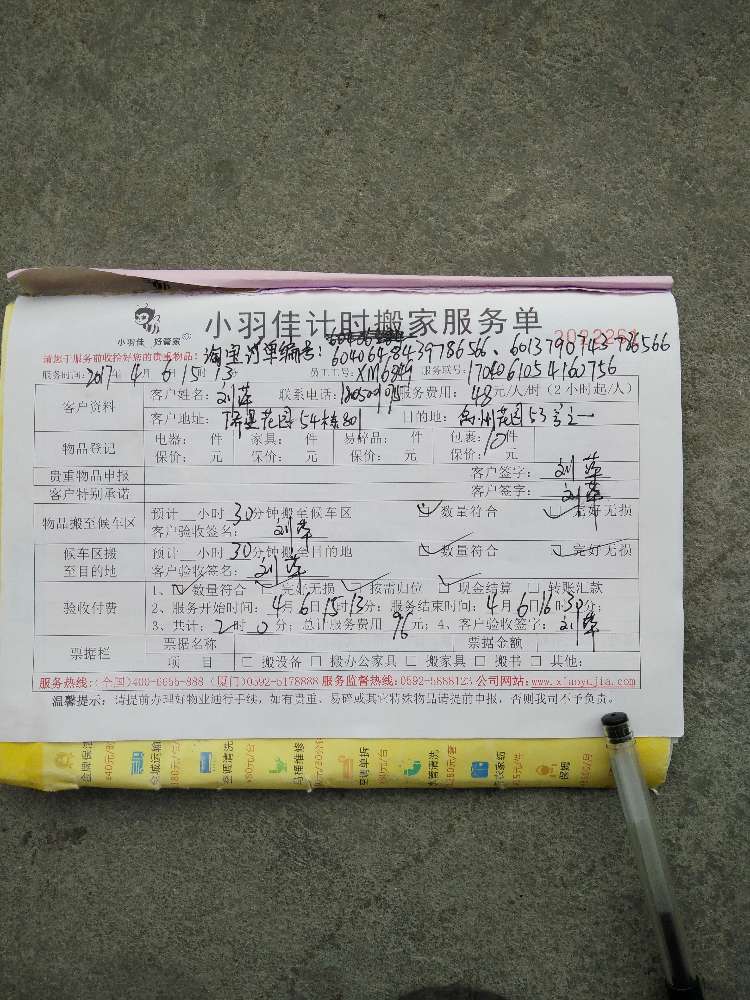 小羽佳 好管家
小羽佳计时搬家服务单
请您于服务前收拾好您的贵重物品:
淘宝订单编号: 6040648439786566、6013790143786566
服务时间: 2017年4月6日15时13 员工工号: XM6849 服务联号: 1704061054160756
客户资料 客户姓名: 刘萍 联系电话: 服务费用: 48元/人/时(2小时起/人)
客户地址: 花园54栋801 目的地: 禹州花园53号之一
物品登记 电器: 件 家具: 件 易碎品: 件 包装: 10件
保价: 元 保价: 元 保价: 元 保价: 元
贵重物品申报 客户签字: 刘萍
客户特别承诺 客户签字: 刘萍
物品搬至候车区 预计 小时30分钟搬至候车区 ☑数量符合 ☑完好无损
客户验收签名: 刘萍
候车区搬至目的地 预计 小时30分钟搬至目的地 ☑数量符合 ☑完好无损
客户验收签名: 刘萍
验收付费 1、☑数量符合 ☑完好无损 ☑按需归位 ☑现金结算 □转账汇款
2、服务开始时间: 4月6日15时13分; 服务结束时间: 4月6日16时30分;
3、共计: 2时0分; 总计服务费用 96元; 4、客户验收签字: 刘萍
票据栏 票据名称 票据金额
项 目 □搬设备 □搬办公家具 □搬家具 □搬书 □其他:
服务热线:(全国)400-6655-888 (厦门)0592-5178888 服务监督热线:0592-5888123 公司网站:www.xiaoyujia.com
温馨提示: 请提前办理好物业通行手续, 如有贵重、易碎或其它特殊物品请提前申报, 否则我司不予负责。